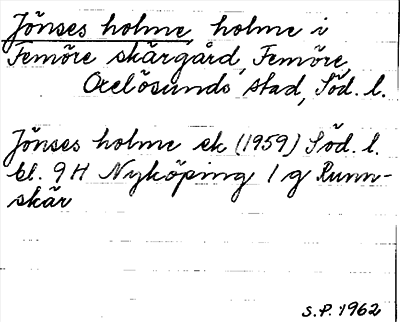 Jönses holme, holme i
Femöre skärgård, Femöre,
Oxelösunds stad, Söd. l.
Jönses holme ek (1959) Söd. l.
bl. 9H Nyköping 1 g Runn-
skär
S.P. 1962